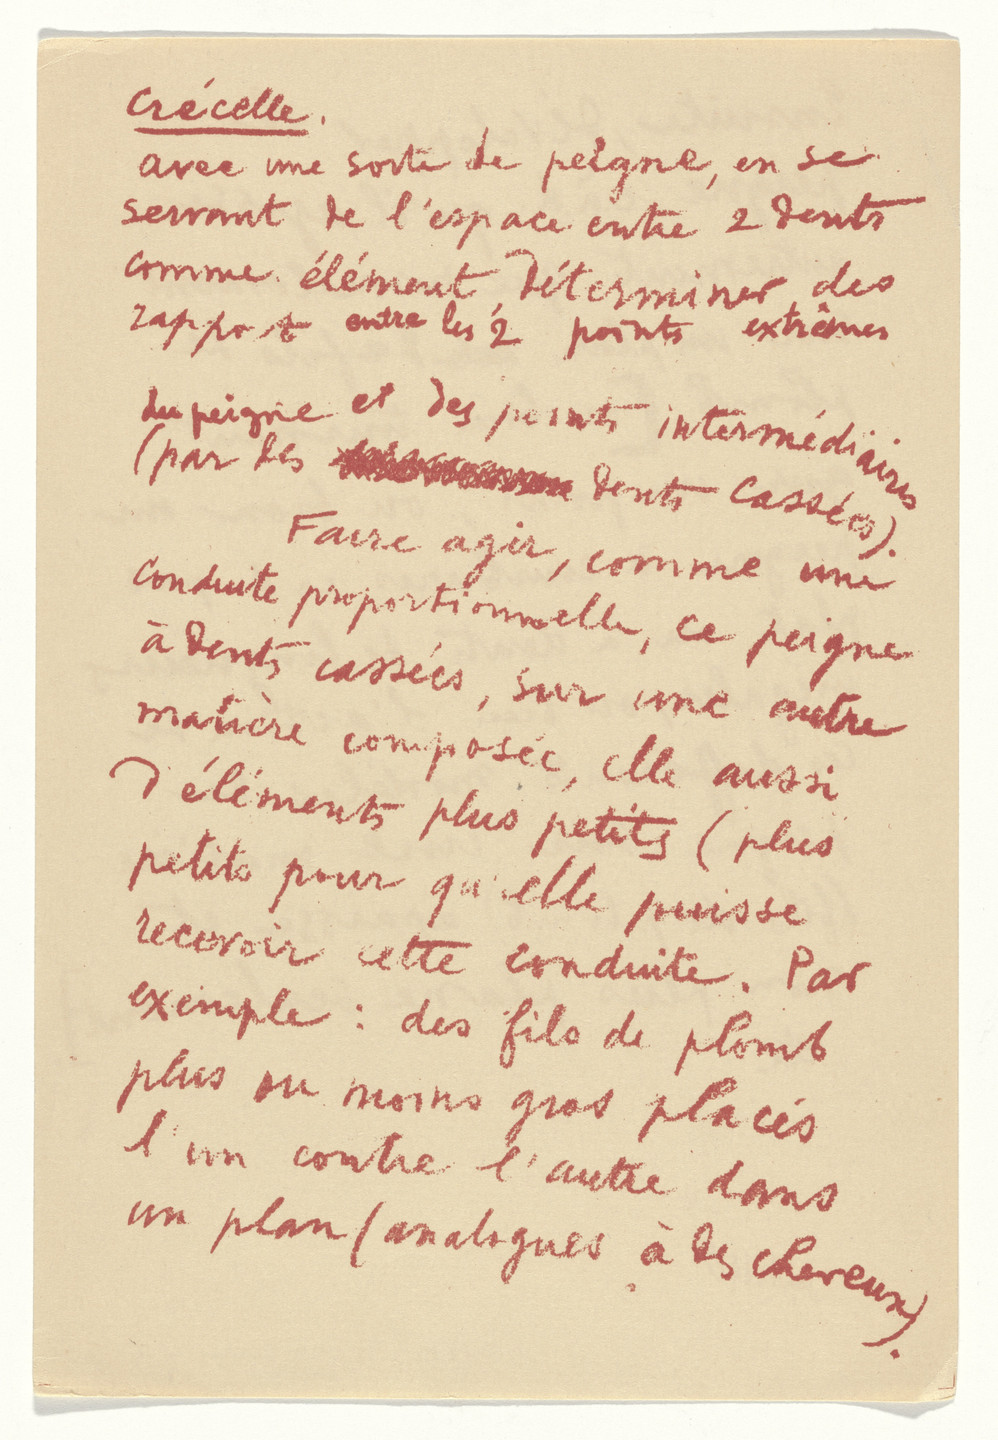 Crécelle.
avec une sorte de peigne, en se
servant de l'espace entre 2 dents
comme élément, déterminer des
rapport entre les 2 points extrêmes
du peigne et des points intermédiaires
(par les dents cassées).
Faire agir, comme une
conduite proportionnelle, ce peigne
à dents cassées, sur une autre
matière composée, elle aussi
d'éléments plus petits (plus
petits pour qu'elle puisse
recevoir cette conduite. Par
exemple : des fils de plomb
plus ou moins gros placés
l'un contre l'autre dans
un plan (analogues à des cheveux).